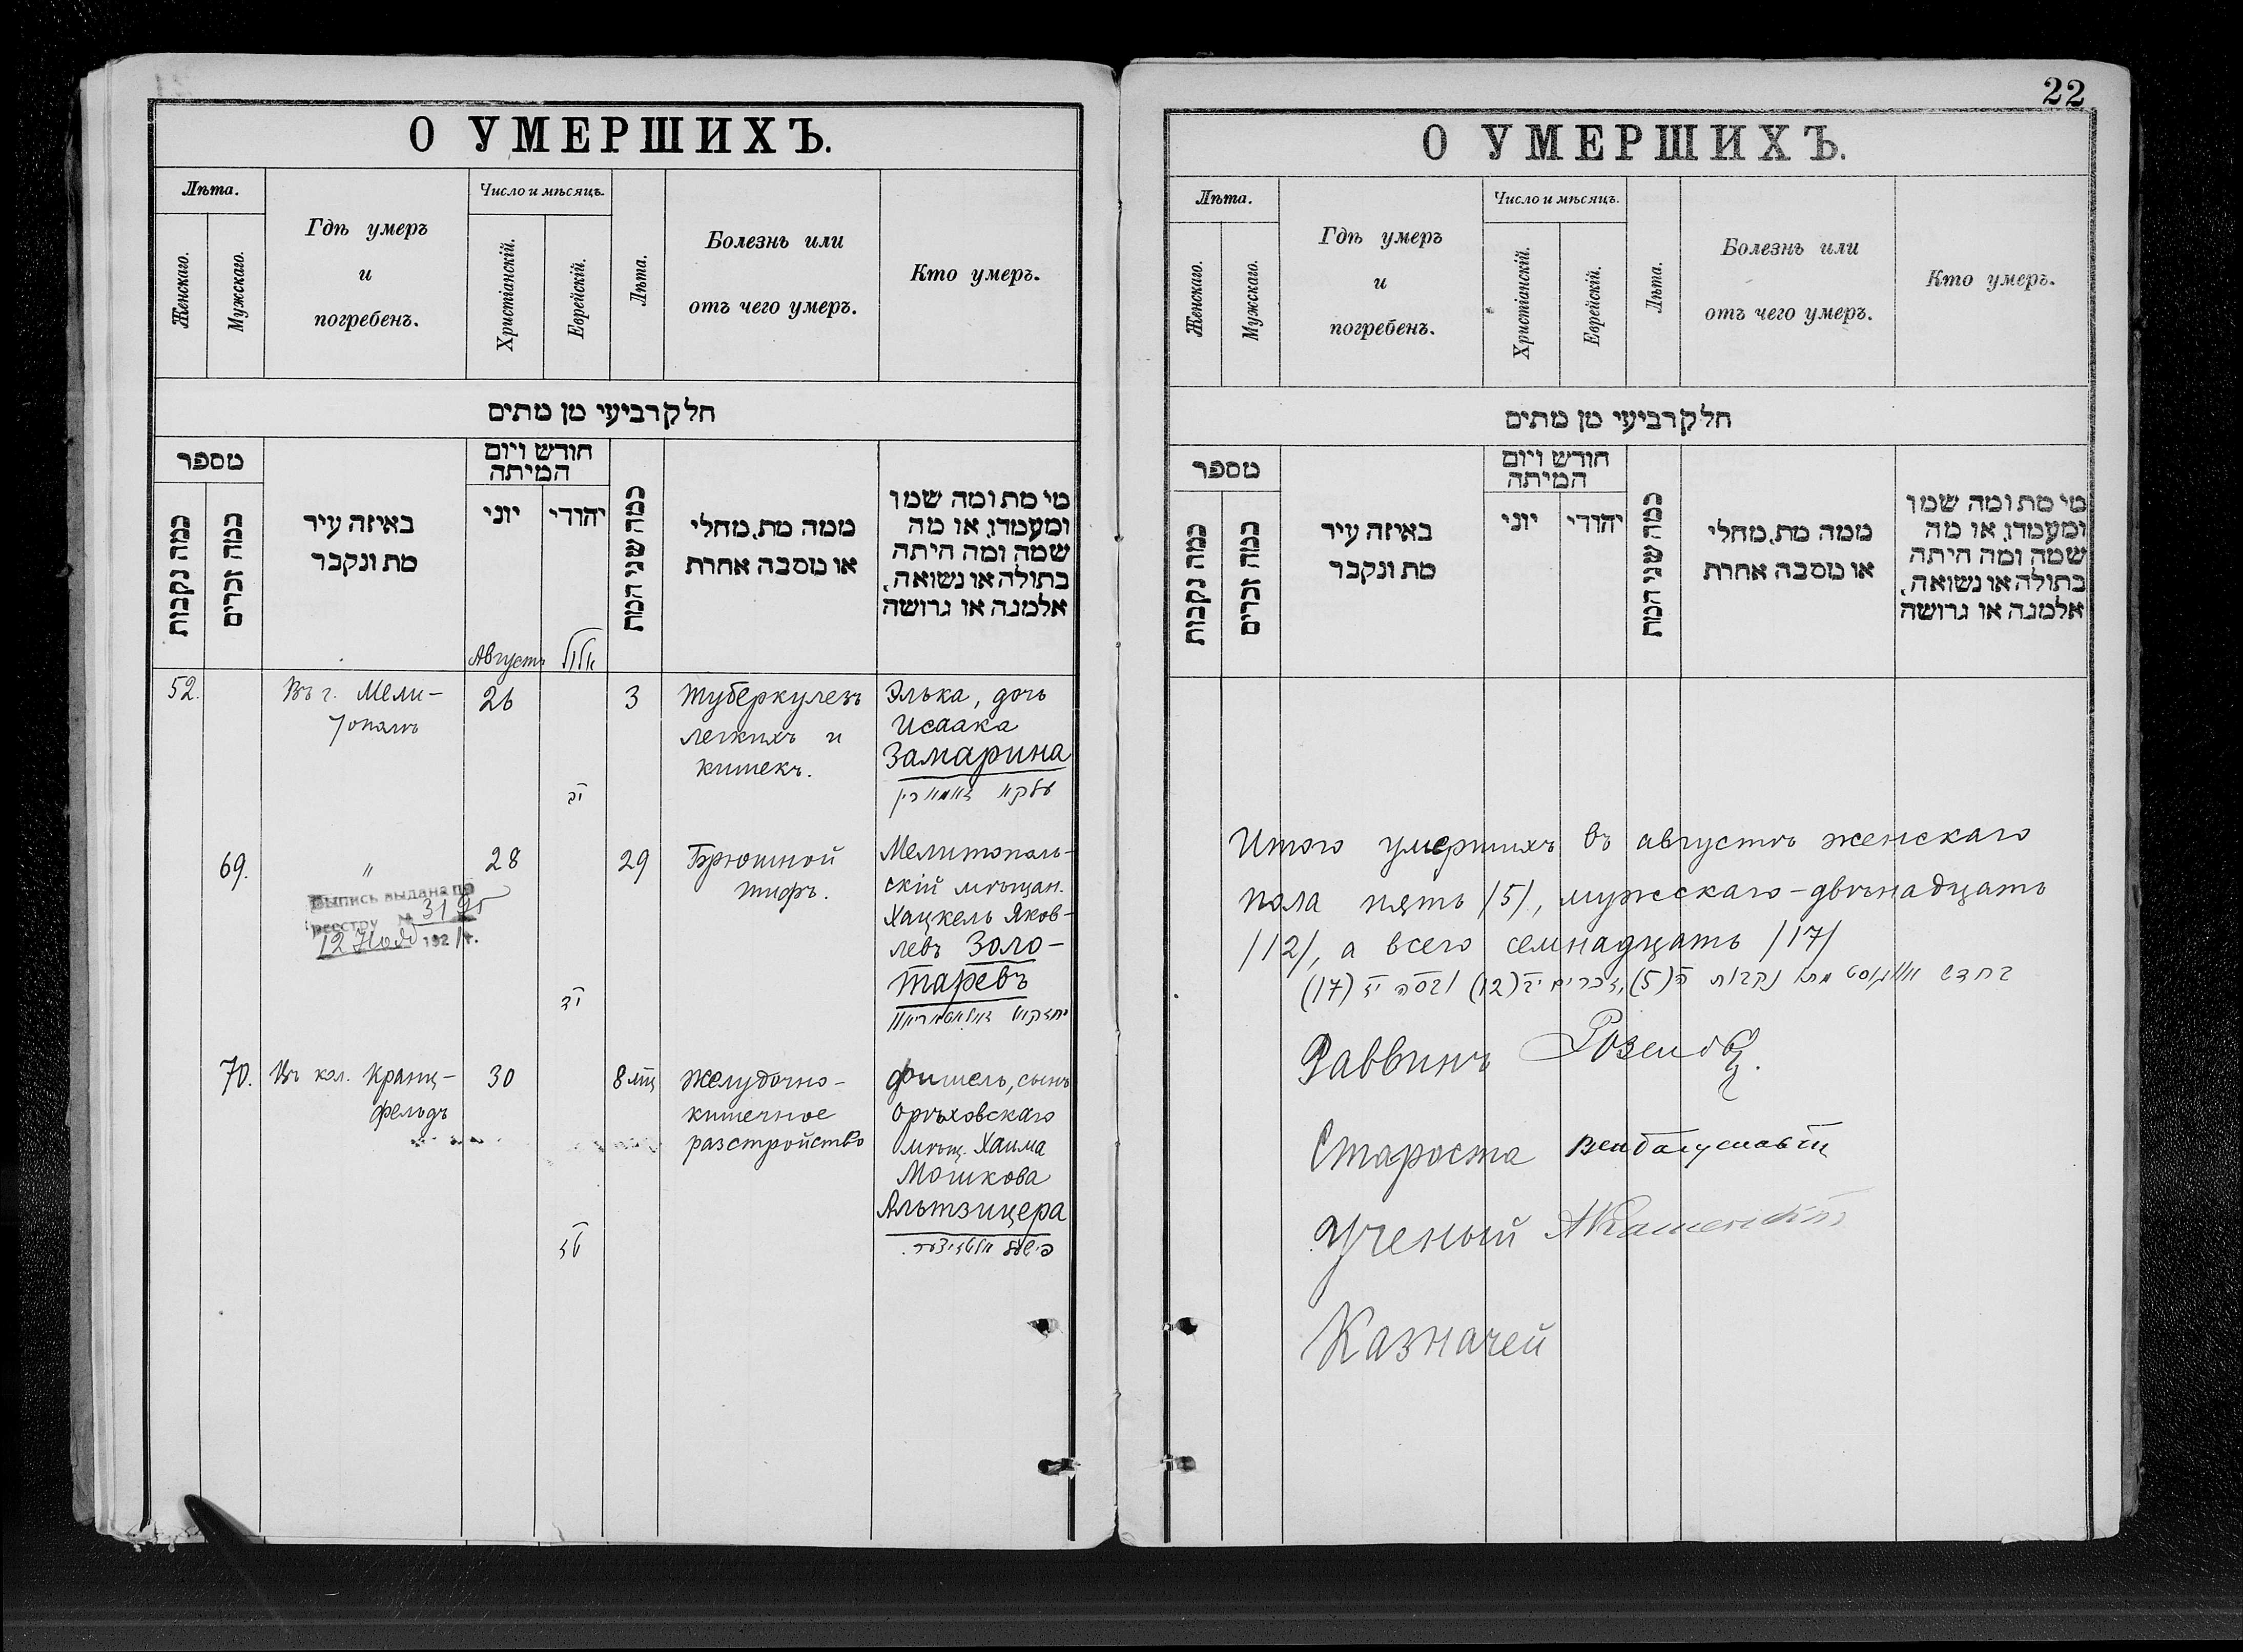 О УМЕРШИХЪ.
Лѣта.
Женскаго.
Мужскаго.
Гдѣ умеръ
и
погребенъ.
Число и мѣсяцъ.
Христіанскій.
Еврейскій.
Лѣта.
Болезнь или
отъ чего умеръ.
Кто умеръ.
חלק רביעי מן מתים
מספר
כמה נקבות
כמה זכרים
באיזה עיר
מת ונקבר
חודש ויום
המיתה
יוני
יהודי
כמה שני המת
ממה מת, מחלי
או מסבה אחרת
מי מת ומה שמו
ומעמדו, או מה
שמה ומה היתה
בתולה או נשואה,
אלמנה או גרושה
Августъ
אלול
52.
Въ г. Мели-
тополѣ
26
3
Туберкулезъ
легкихъ и
кишекъ.
Элька, дочь
Исаака
Замарина
עלקא זאמארין
69.
"
28
29
Брюшной
тифъ.
Мелитополь-
скій мѣщан.
Хацкель Яков-
левъ Золо-
таревъ
Выпись выдана по
реестру № 3195
12 Нояб 192 г.
יד
70.
Въ кол. Кранц-
фельдъ
30
8 мц
Желудочно-
кишечное
разстройство
Фишель, сынъ
Орѣховскаго
мѣщ. Хаима
Мошкова
Альтзицера
פישעל אלטזיצער.
טז
22
О УМЕРШИХЪ.
Лѣта.
Женскаго.
Мужскаго.
Гдѣ умеръ
и
погребенъ.
Число и мѣсяцъ.
Христіанскій.
Еврейскій.
Лѣта.
Болезнь или
отъ чего умеръ.
Кто умеръ.
חלק רביעי מן מתים
מספר
כמה נקבות
כמה זכרים
באיזה עיר
מת ונקבר
חודש ויום
המיתה
יוני
יהודי
כמה שני המת
ממה מת, מחלי
או מסבה אחרת
מי מת ומה שמו
ומעמדו, או מה
שמה ומה היתה
בתולה או נשואה,
אלמנה או גרושה
Итого умершихъ въ августѣ женскаго
пола пять /5/, мужскаго - двѣнадцать
/12/, а всего семнадцать /17/
בחדש אווגוסט מתו נקבות ה (5), זכרים יב (12) ובסה יז (17)
Раввинъ
Староста
Ученый АКаменскій
Казначей